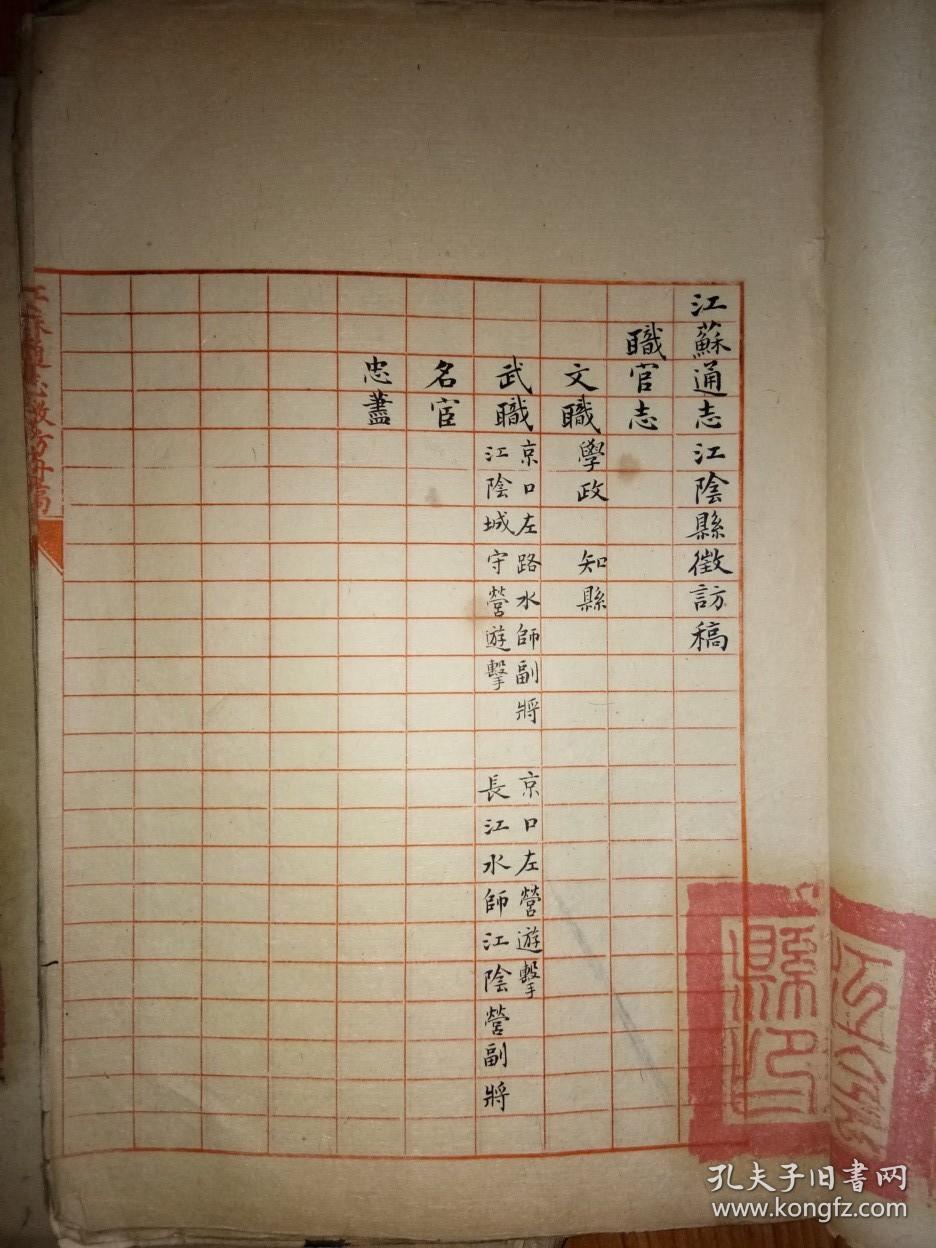 江蘇通志江陰縣徵訪稿
職官志
文職 學政 知縣
武職 京口左路水師副將 京口左營遊擊
江陰城守營遊擊 長江水師江陰營副將
名宦
忠藎
江蘇通志徵訪冊稿
江陰縣印
孔夫子旧书网
www.kongfz.com